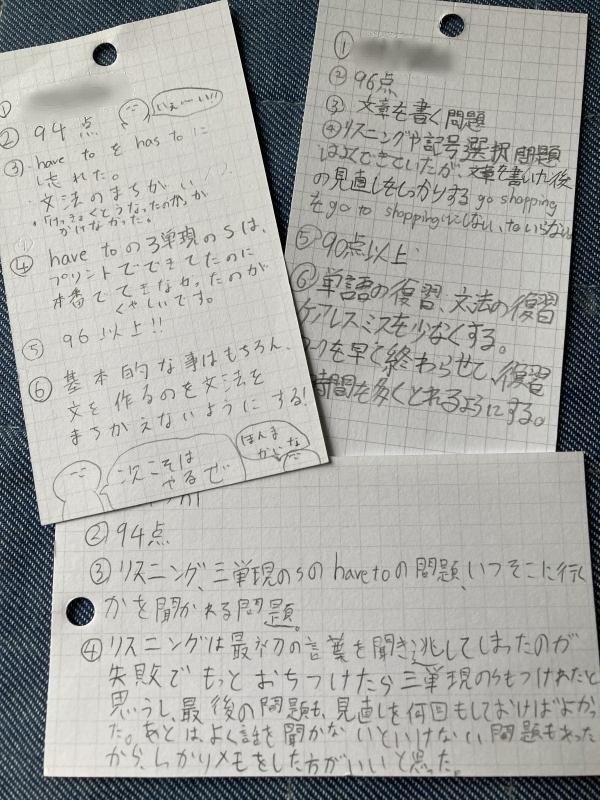 ①
② 94点
いぇーい!!
③ have to を has to に
し忘れた。
・文法のまちがい
・「けっきょくどうなったのか」が
かけなかった。
④ have toの3単現のsは、
プリントでできてたのに
本番でできなかったのが
くやしいです。
⑤ 96以上!!
⑥ 基本的な事はもちろん、
文を作るのを文法を
まちがえないようにする!
次こそは
やるぜ
ほんま
かいな
①
② 96点
③ 文章を書く問題
④リスニングや記号選択問題
はよくできていたが文章を書いた後
の見直しをしっかりする go shopping
をgo to shoppingにしない、toいらない
⑤ 90点以上
⑥ 単語の復習、文法の復習
ケアレスミスを少なくする。
ークを早く終わらせて、復習
時間も多くとれるようにする。
② 94点
③ リスニング、三単現のsのhave toの問題、いつそこに行く
かを聞かれる問題。
④ リスニングは最初の言葉を聞き逃してしまったのが
失敗でもっとおちつけたら三単現のsもつけれたと
思うし、最後の問題も、見直しを何回もしておけばよかっ
た。あとは、よく話を聞かないといけない問題もあった
から、しっかりメモをした方がいいと思った。